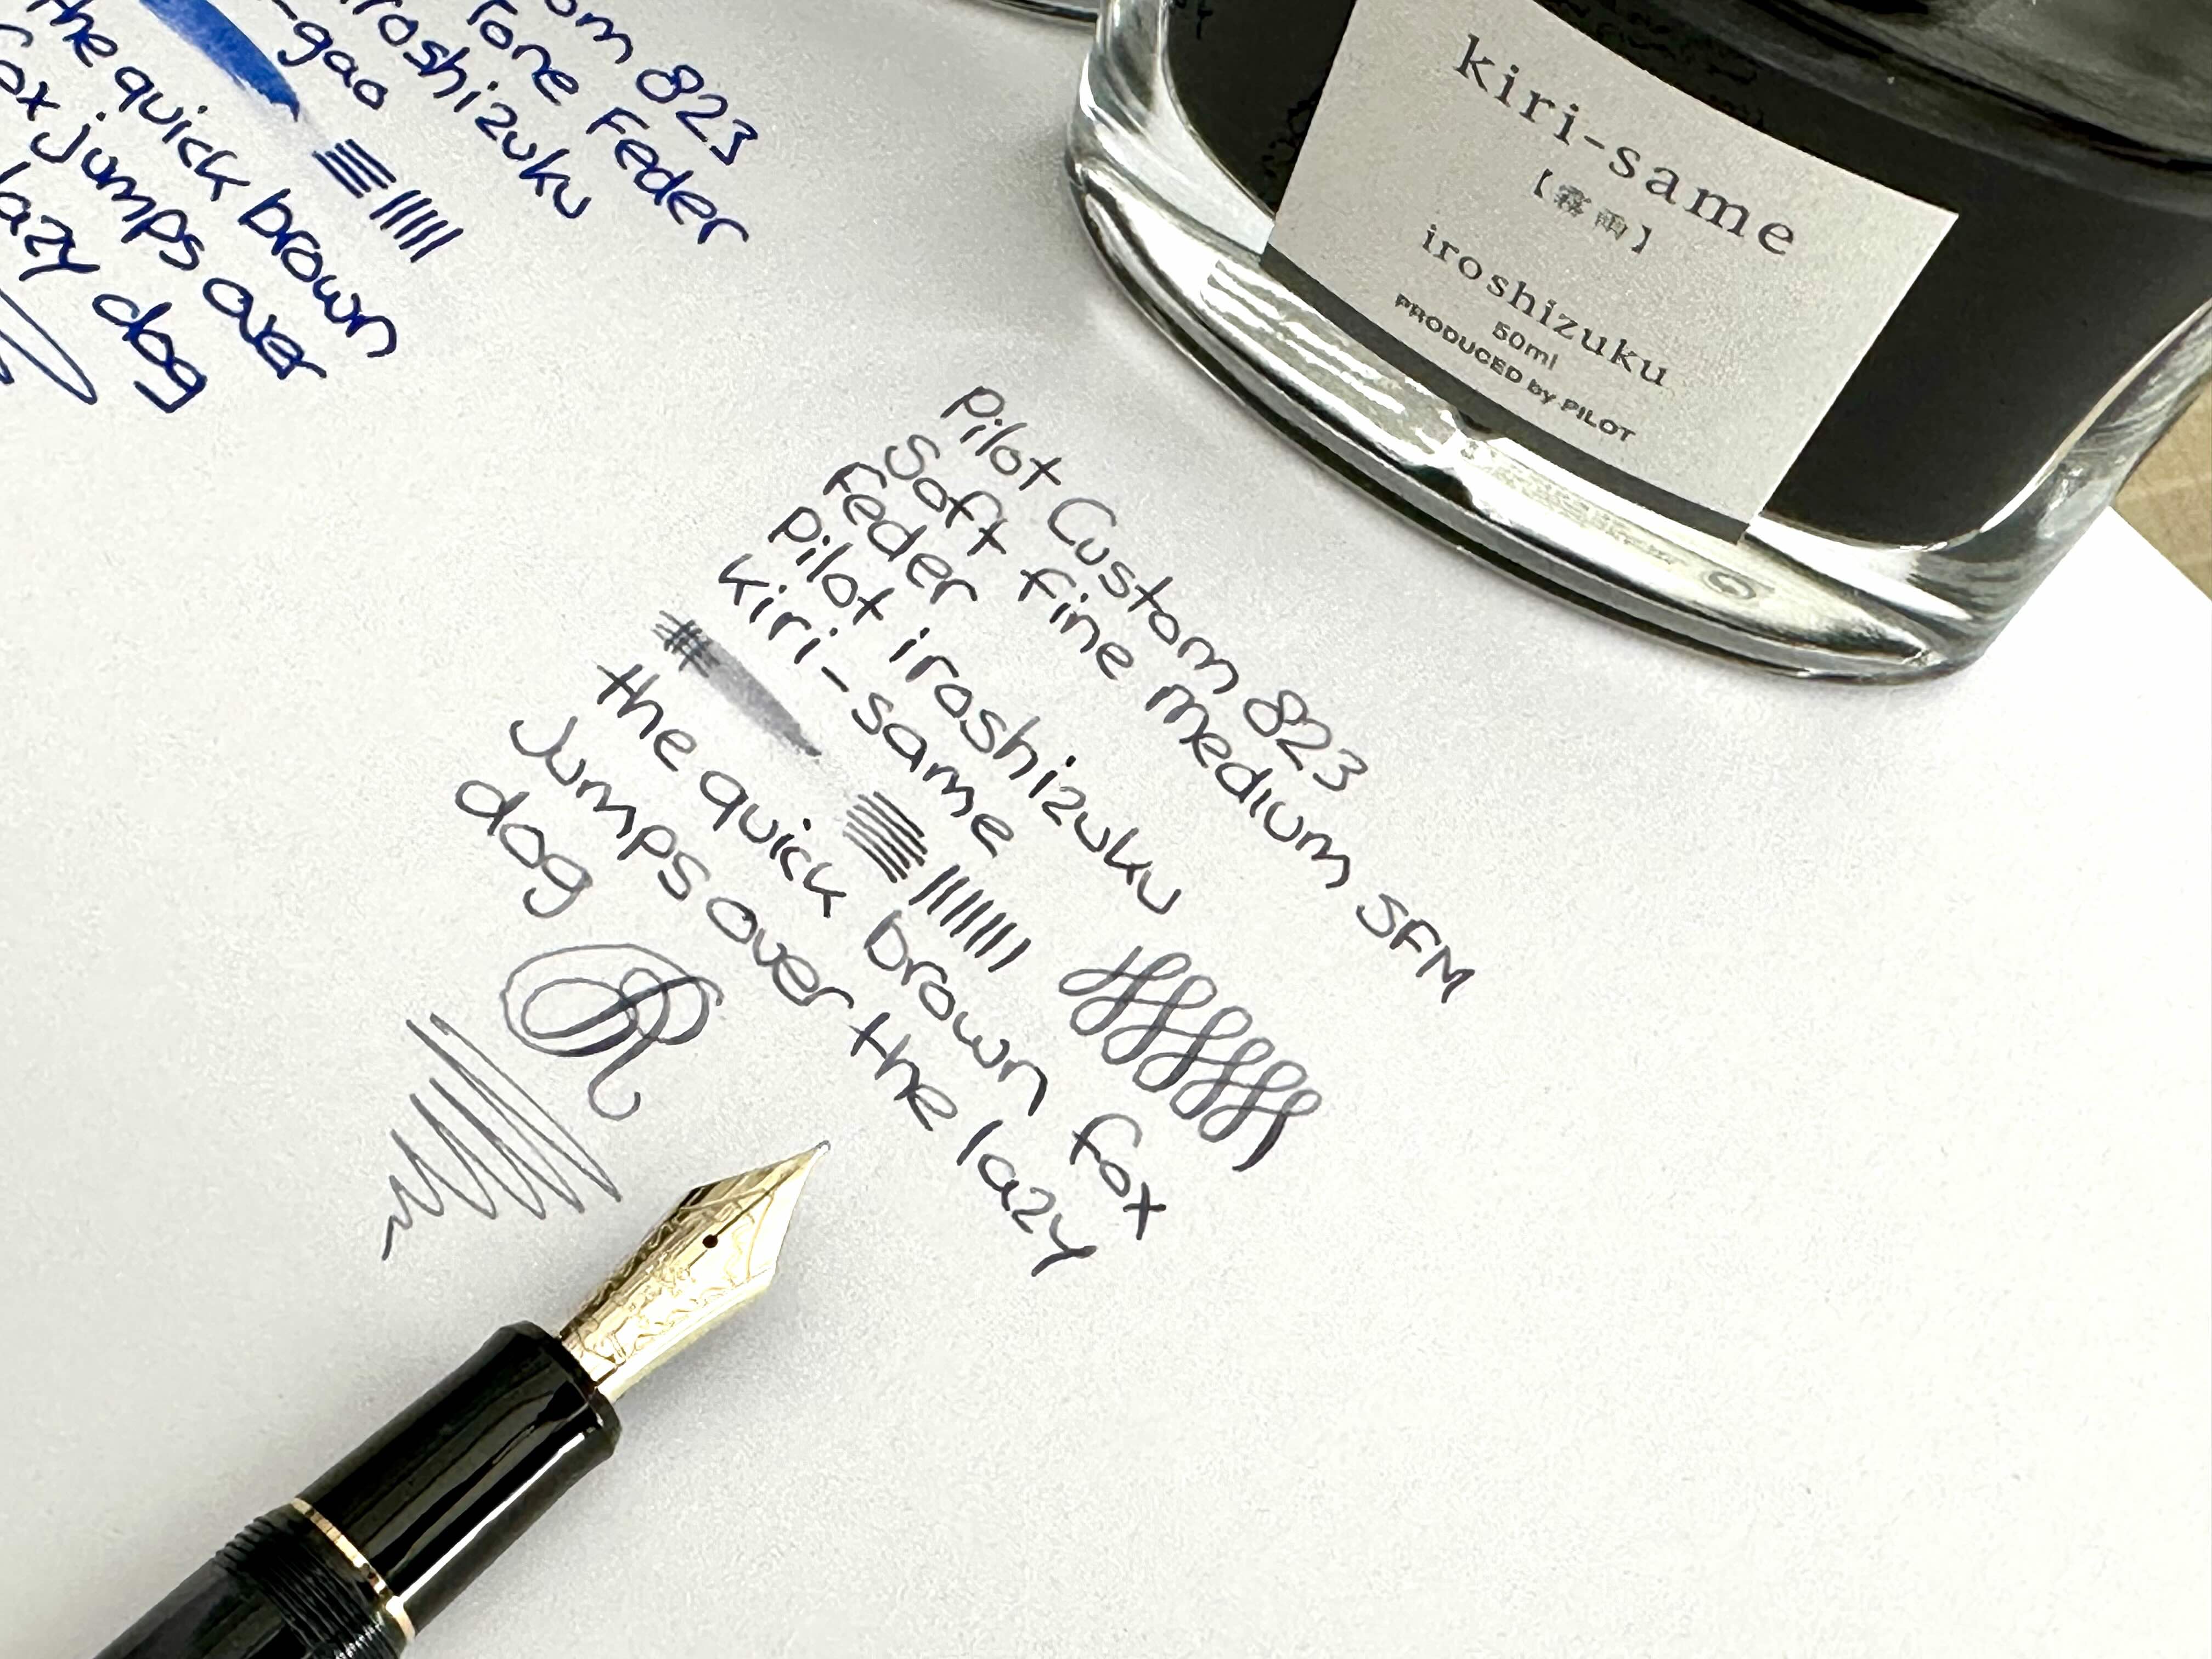 om 823
Tone Feder
iroshizuku
-gao
the quick brown
fox jumps over
lazy dog
kiri-same
【霧雨】
iroshizuku
50ml
PRODUCED by PILOT
Pilot Custom 823
Soft fine medium SFM
Feder
Pilot iroshizuku
kiri-same
the quick brown fox
Jumps over the lazy
dog